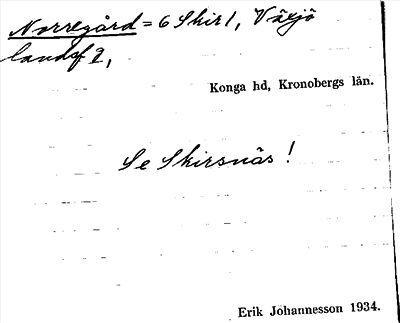 Norregård = 6 Skir 1, Växjö
landsf 2,
Konga hd, Kronobergs län.
Se Skirsnäs!
Erik Johannesson 1934.